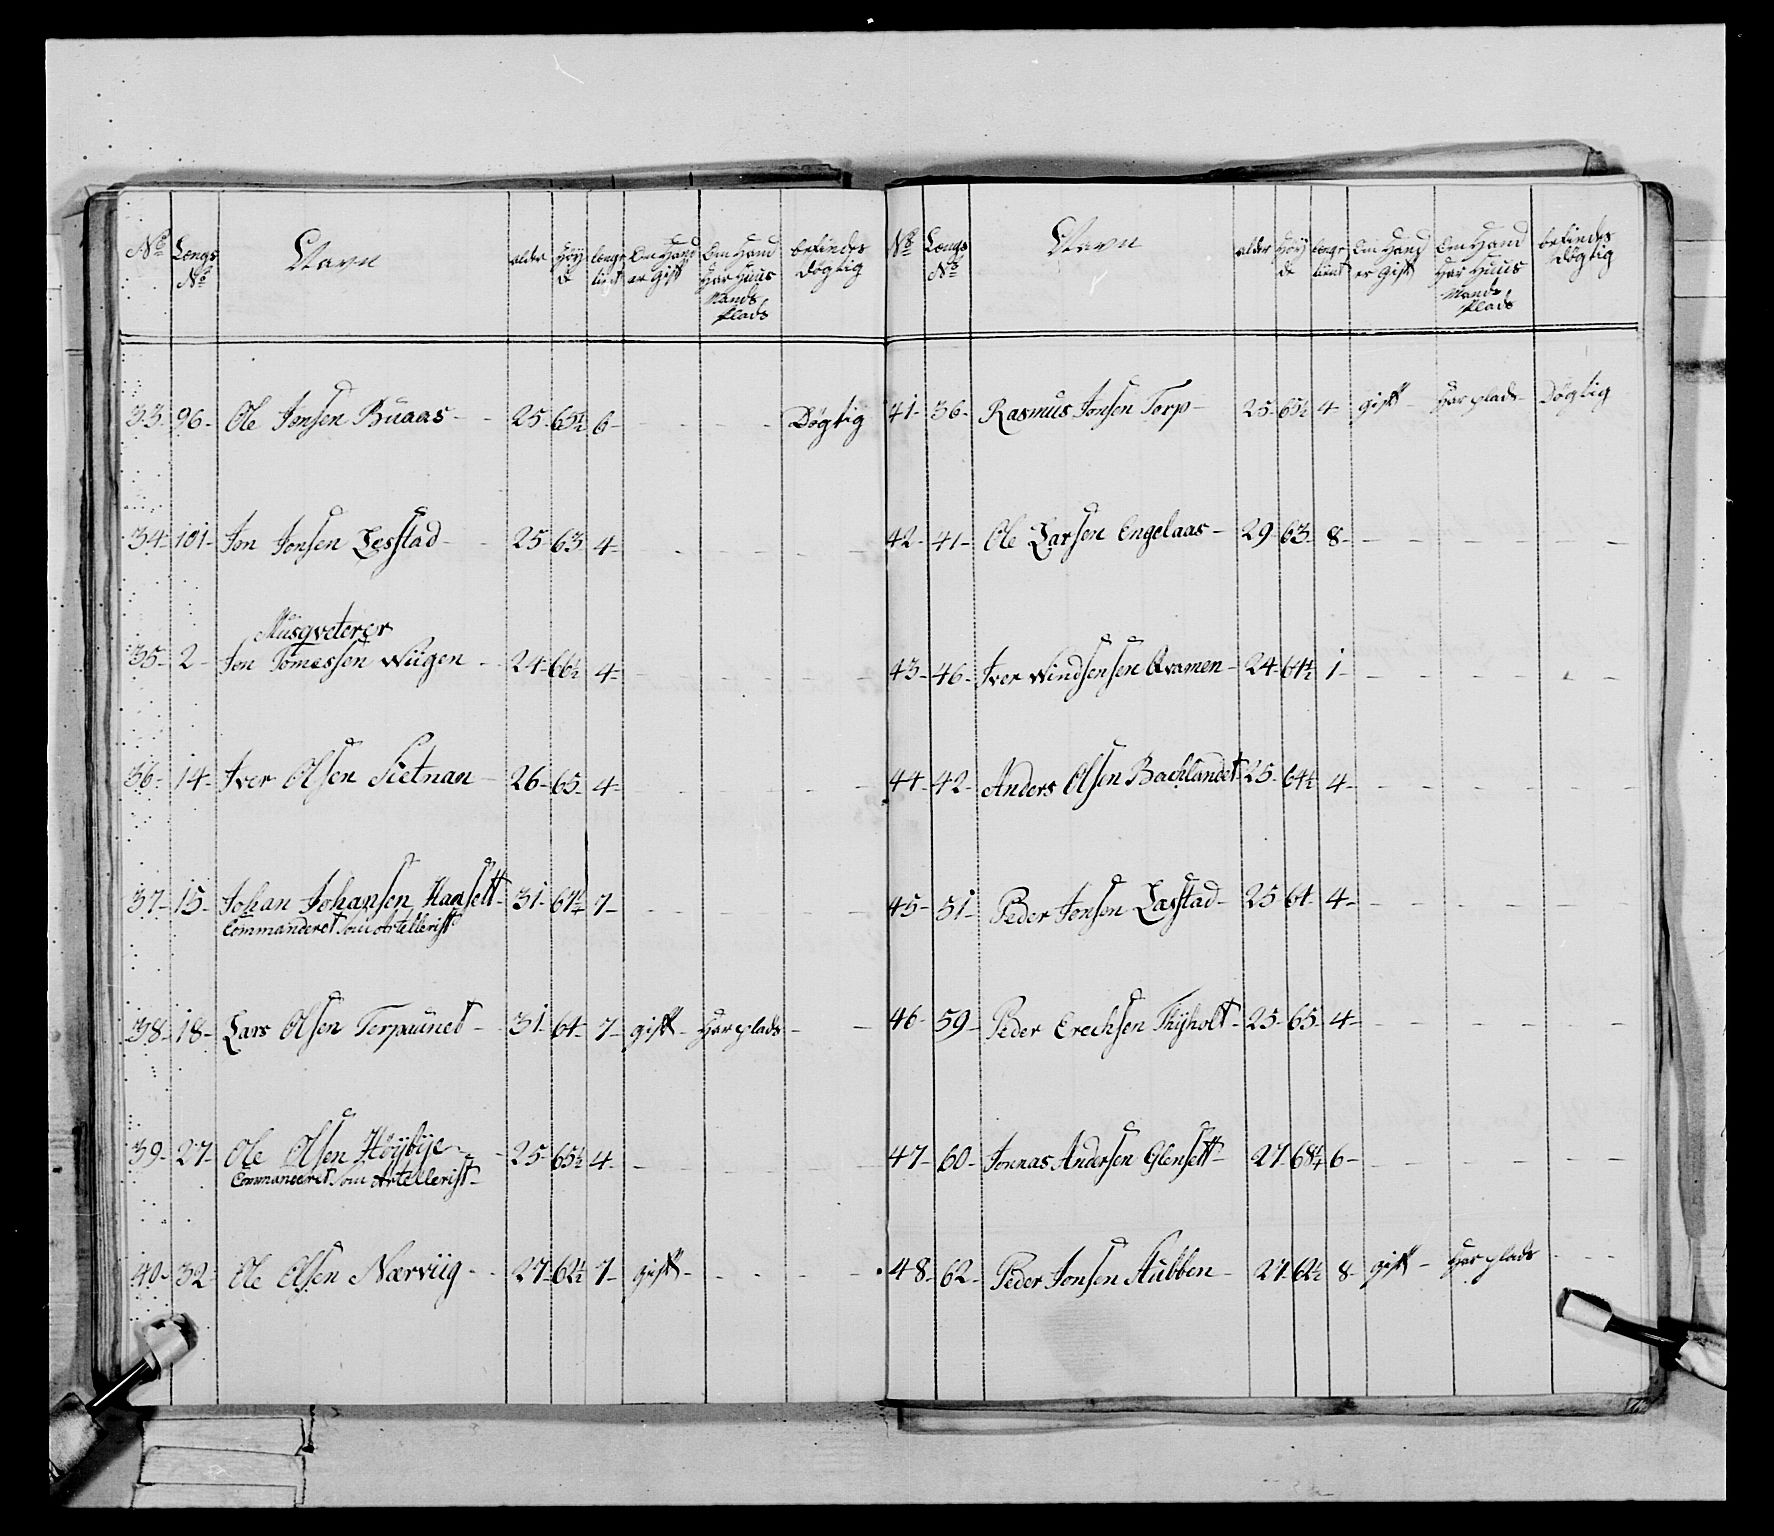 No Længs No Navn alder Höyde længe tient Om Hand er gift Om Hand Har Huus Mands plads befindes Døgtig
33- 96- Ole Jonsen Buaas - - 25- 65½ 6- - - - Døgtig
34- 101- Jon Jonsen Lesstad - - 25- 63- 4- - - -
Musqveterer
35- 2- Jon Tomassen Wiigen - 24- 66½ 4- - - - -
36- 14- Iver Olsen Sletnan - 26- 65- 4- - - - -
37- 15- Johan Johansen Hansett- 31- 67¼ 7- - - -
Commanderet som Artellerist
38- 18- Lars Olsen Terpaunet - 31- 64- 7- gift - Har plads - -
39- 27- Ole Olsen Höÿbÿe - 25- 65½ 4- - - - -
Commanderet som Artellerist-
40- 32- Ole Olsen Nærviig - - 27- 62½ 7- gift - - - -
No Længs No Navn alder Höyde længe tient Om Hand er gift Om Hand Har Huus Mands plads befindes Døgtig
41- 36- Rasmus Jonsen Torp- 25- 65½ 4- gift - Har plads - Døgtig
42- 41- Ole Larsen Engelaas - 29- 63- 8- - - - -
43- 46- Iver Windsensen Qvamen - 24- 64½ 1- - - - -
44- 42- Anders Olsen Bachlandet- 25- 64½ 4- - - - -
45- 51- Peder Jonsen Læsstad- 25 64- 4- - - - -
46- 59- Peder Erechsen Thÿholt- 25- 65- 4- - - - -
47- 60- Jonnas Andersen Glensett- 27- 68¼ 6- - - - -
48- 62- Peder Jonsen Stubben - 27- 62½ 8- gift - Har plads - - -